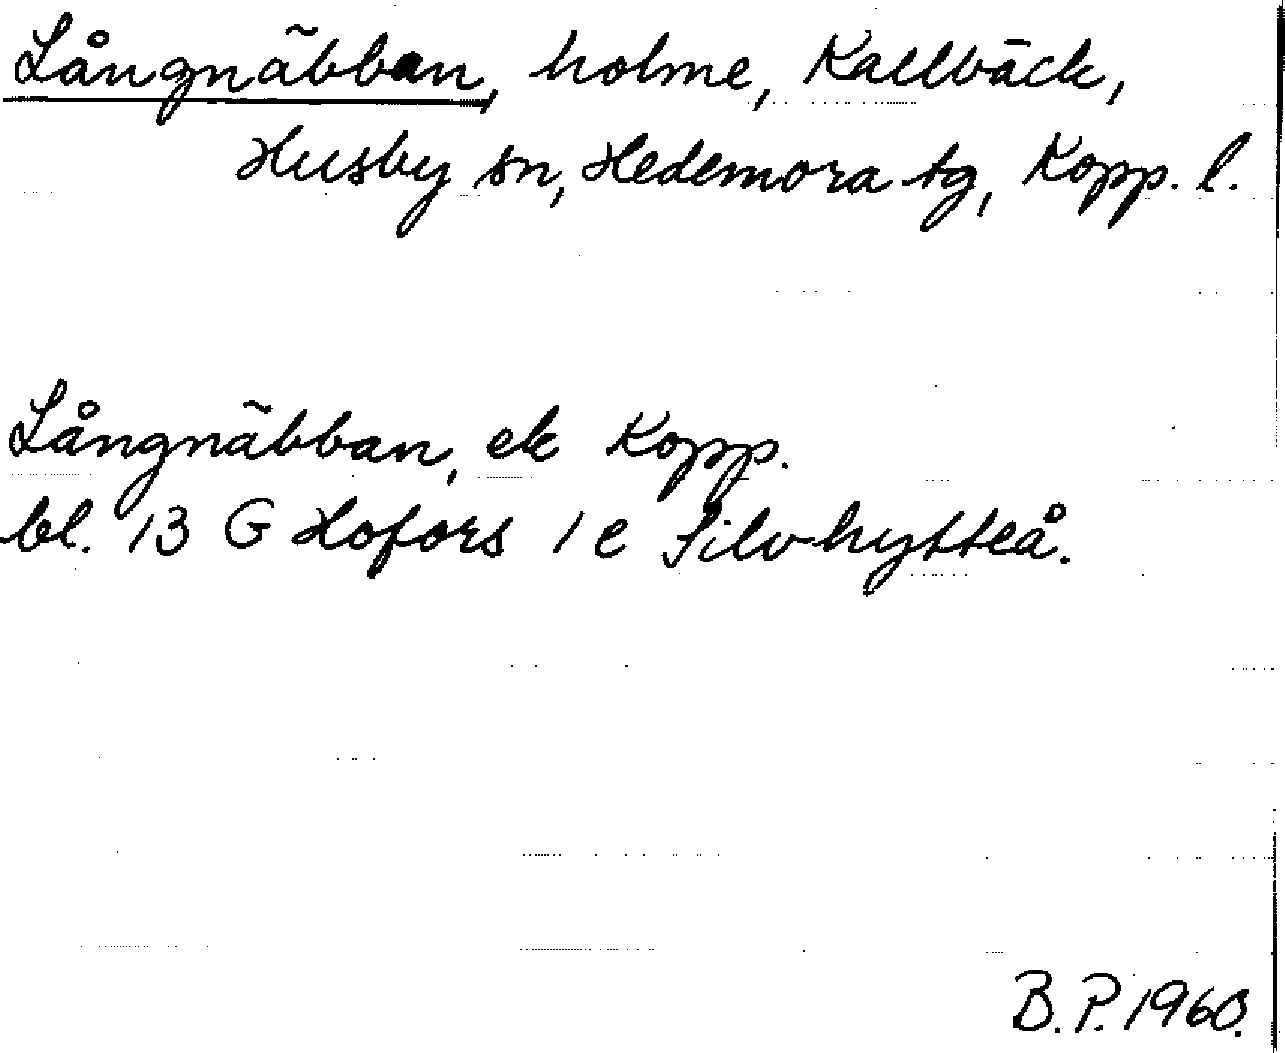 Långnäbban, holme, Kallbäck,
Husby sn, Hedemora tg, Kopp. l.
Långnäbban, ek Kopp.
bl. 13 G Hofors 1 e Silvhytteå.
B.P. 1960.